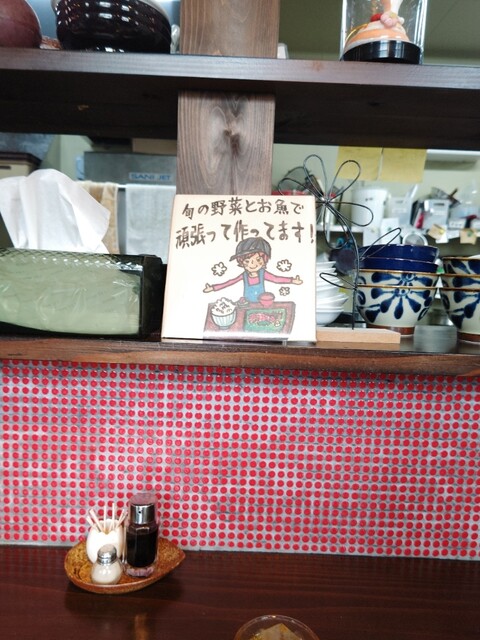 旬の野菜とお魚で
頑張って作ってます!
SANIJET